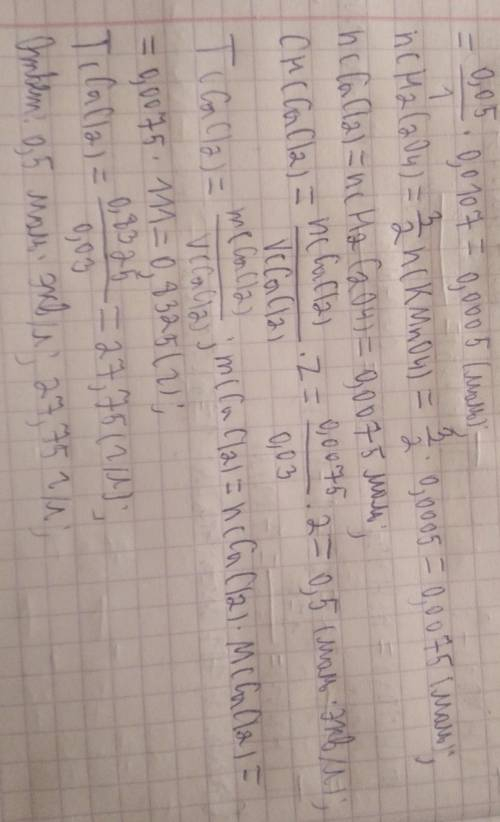 = 0,05/1 · 0,0107 = 0,0005 (моль)
n(H2C2O4) = 3/2 n(KMnO4) = 3/2 · 0,0005 = 0,0075 (моль);
n(CaCl2) = n(H2C2O4) = 0,0075 моль;
Cн(CaCl2) = n(CaCl2)/V(CaCl2) · z = 0,0075/0,03 · 2 = 0,5 (моль·экв/л);
T(CaCl2) = m(CaCl2)/V(CaCl2); m(CaCl2) = n(CaCl2) · M(CaCl2) =
= 0,0075 · 111 = 0,8325 (г);
T(CaCl2) = 0,8325/0,03 = 27,75 (г/л);
Ответ: 0,5 моль·экв/л; 27,75 г/л;